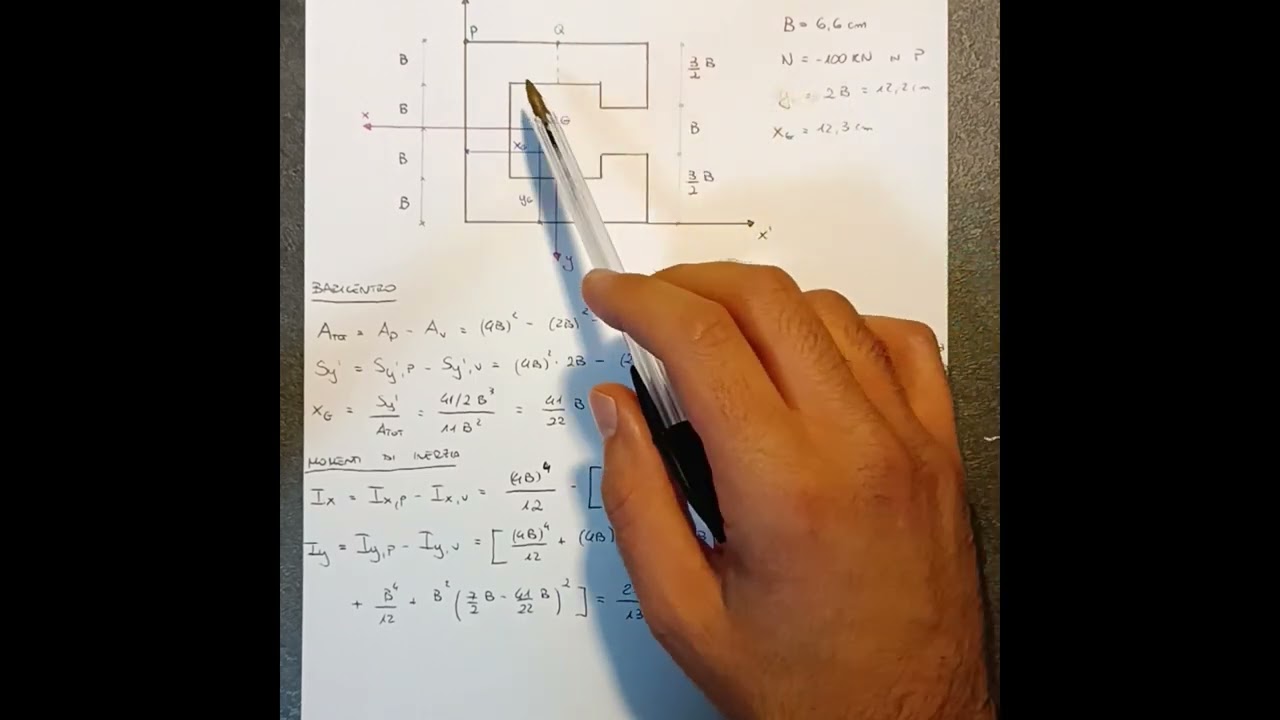 P Q
B
B
B
B
x
G
x_G
y_G
3/2 B
B
3/2 B
x'
y
B = 6,6 cm
N = -100 KN in P
y = 2B = 12,2 cm
x_G = 12,3 cm
BARICENTRO
A_TOT = A_P - A_V = (4B)² - (2B)² -
Sy' = Sy',P - Sy',V = (4B)² · 2B - (2
x_G = Sy' / A_TOT = 41/2 B³ / 11B² = 41/22 B
MOMENTI DI INERZIA
I_x = I_x,P - I_x,V = (4B)⁴/12 - [
I_y = I_y,P - I_y,V = [ (4B)⁴/12 + (4B) B)
+ B⁴/12 + B² ( 7/2 B - 41/22 B )² ] = 2 /13